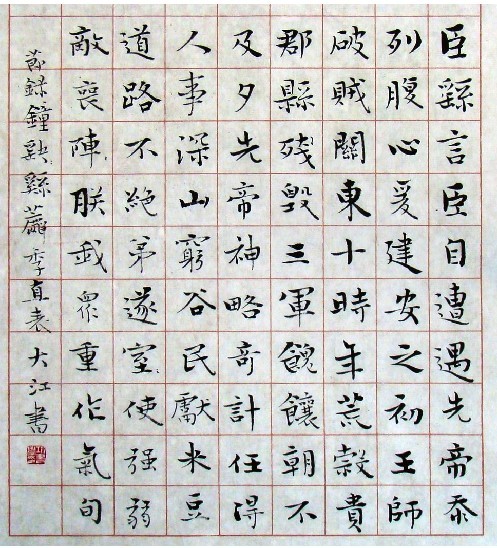 臣繇言臣自遭遇先帝忝
列腹心爰建安之初王師
破賊關東十時年荒穀貴
郡縣殘毀三軍餽饟朝不
及夕先帝神略奇計任得
人事深山窮谷民獻米豆
道路不絕第遂室使强弱
敵喪陣朕我眾重作氣旬
節錄鐘繇薦季直表大江書